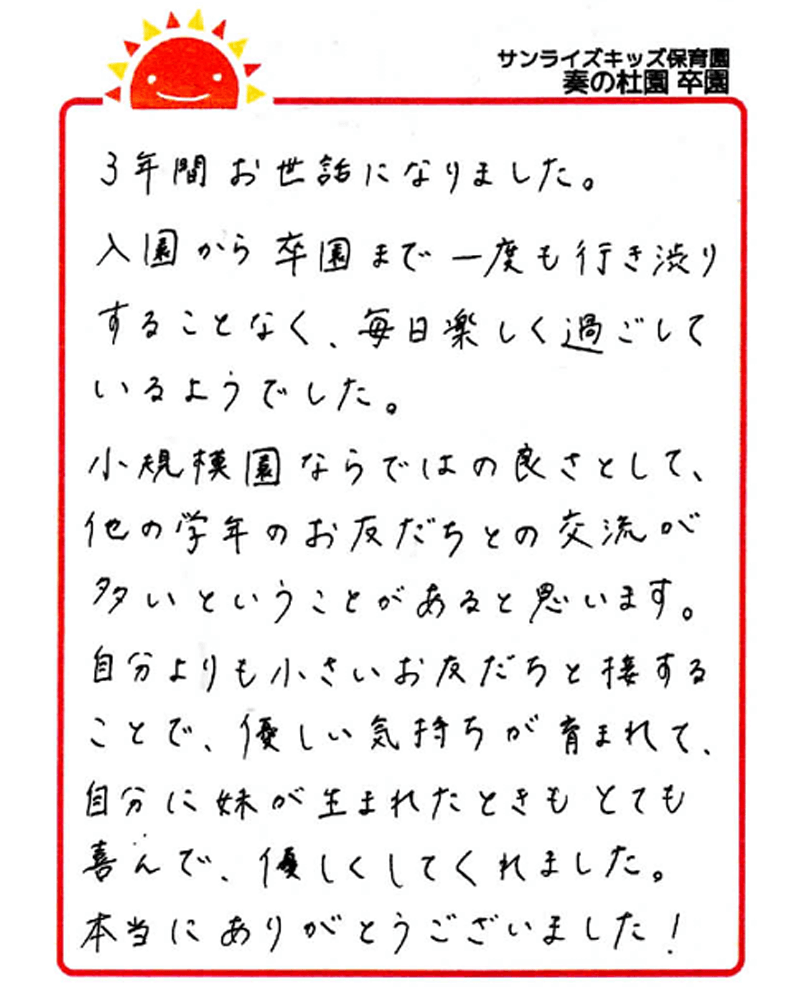 サンライズキッズ保育園
奏の杜園 卒園
3年間お世話になりました。
入園から卒園まで一度も行き渋り
することなく、毎日楽しく過ごして
いるようでした。
小規模園ならではの良さとして、
他の学年のお友だちとの交流が
多いということがあると思います。
自分よりも小さいお友だちと接する
ことで、優しい気持ちが育まれて、
自分に妹が生まれたときもとても
喜んで、優しくしてくれました。
本当にありがとうございました!